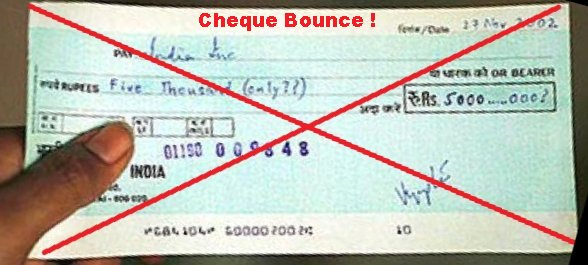 Cheque Bounce !
Date 27 Nov 2002
PAY India Inc
या धारक को OR BEARER
रुपये RUPEES Five Thousand (only??)
अदा करें रु.Rs. 5000.....000?
01190 009848
INDIA
10